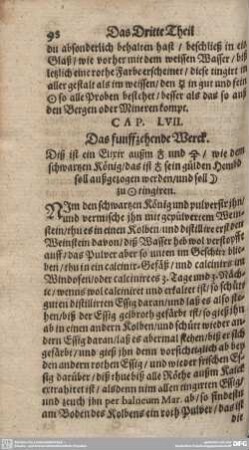 98 Das Dritte Theil
du absonderlich behalten hast / beschließ in ein
Glaß / wie vorher mit dem weissen Wasser / biß
letzlich eine rothe Farbe erscheinet / diese tingirt in
aller gestalt als im weissen / den ☿ in gut und fein
☉ so alle Proben bestehet / besser als das so auß
den Bergen oder Mineren kompt.
CAP. LVII.
Das funffzehende Werck.
Diß ist ein Elixir außm ☿ und / wie dem
schwartzen König / das ist ☿ sein gülden Hembd
soll außgezogen werden / und soll ☽
zu ☉ tingiren.
NIm den schwartzen König und pulverisir ihn /
und vermische ihn mit gepülvertem Wein-
stein / thu es in einen Kolben / und distillire erst den
Weinstein davon / diß Wasser heb wol verstopfft
auff / das Pulver aber so unten im Geschirr blie
ben / thu in ein calcinir-Gefäß / und calcinir es im
Windofen / oder calcinir es 3. Tage und 3. Näch-
te / wenns wol calcinirt und erkaltet ist / so schütte
guten distillirten Essig daran / und laß es also ste-
hen / biß der Essig gelbroth gefärbt ist / so gieß ihn
ab in einen andern Kolben / und schütt wieder an-
dern Essig daran / laß es abermal stehen / biß er sich
gefärbt / und gieß ihn denn vorsichtiglich ab bey
den andern rothen Essig / und wieder frischen Es-
sig darüber / diß thue biß alle Röthe außm Kalck
extrahiret ist / alsdenn nim allen tingirten Essig /
und zeuch ihn per balneum Mar. ab / so findestu
am Boden des Kolbens ein roth Pulver / das ist
die